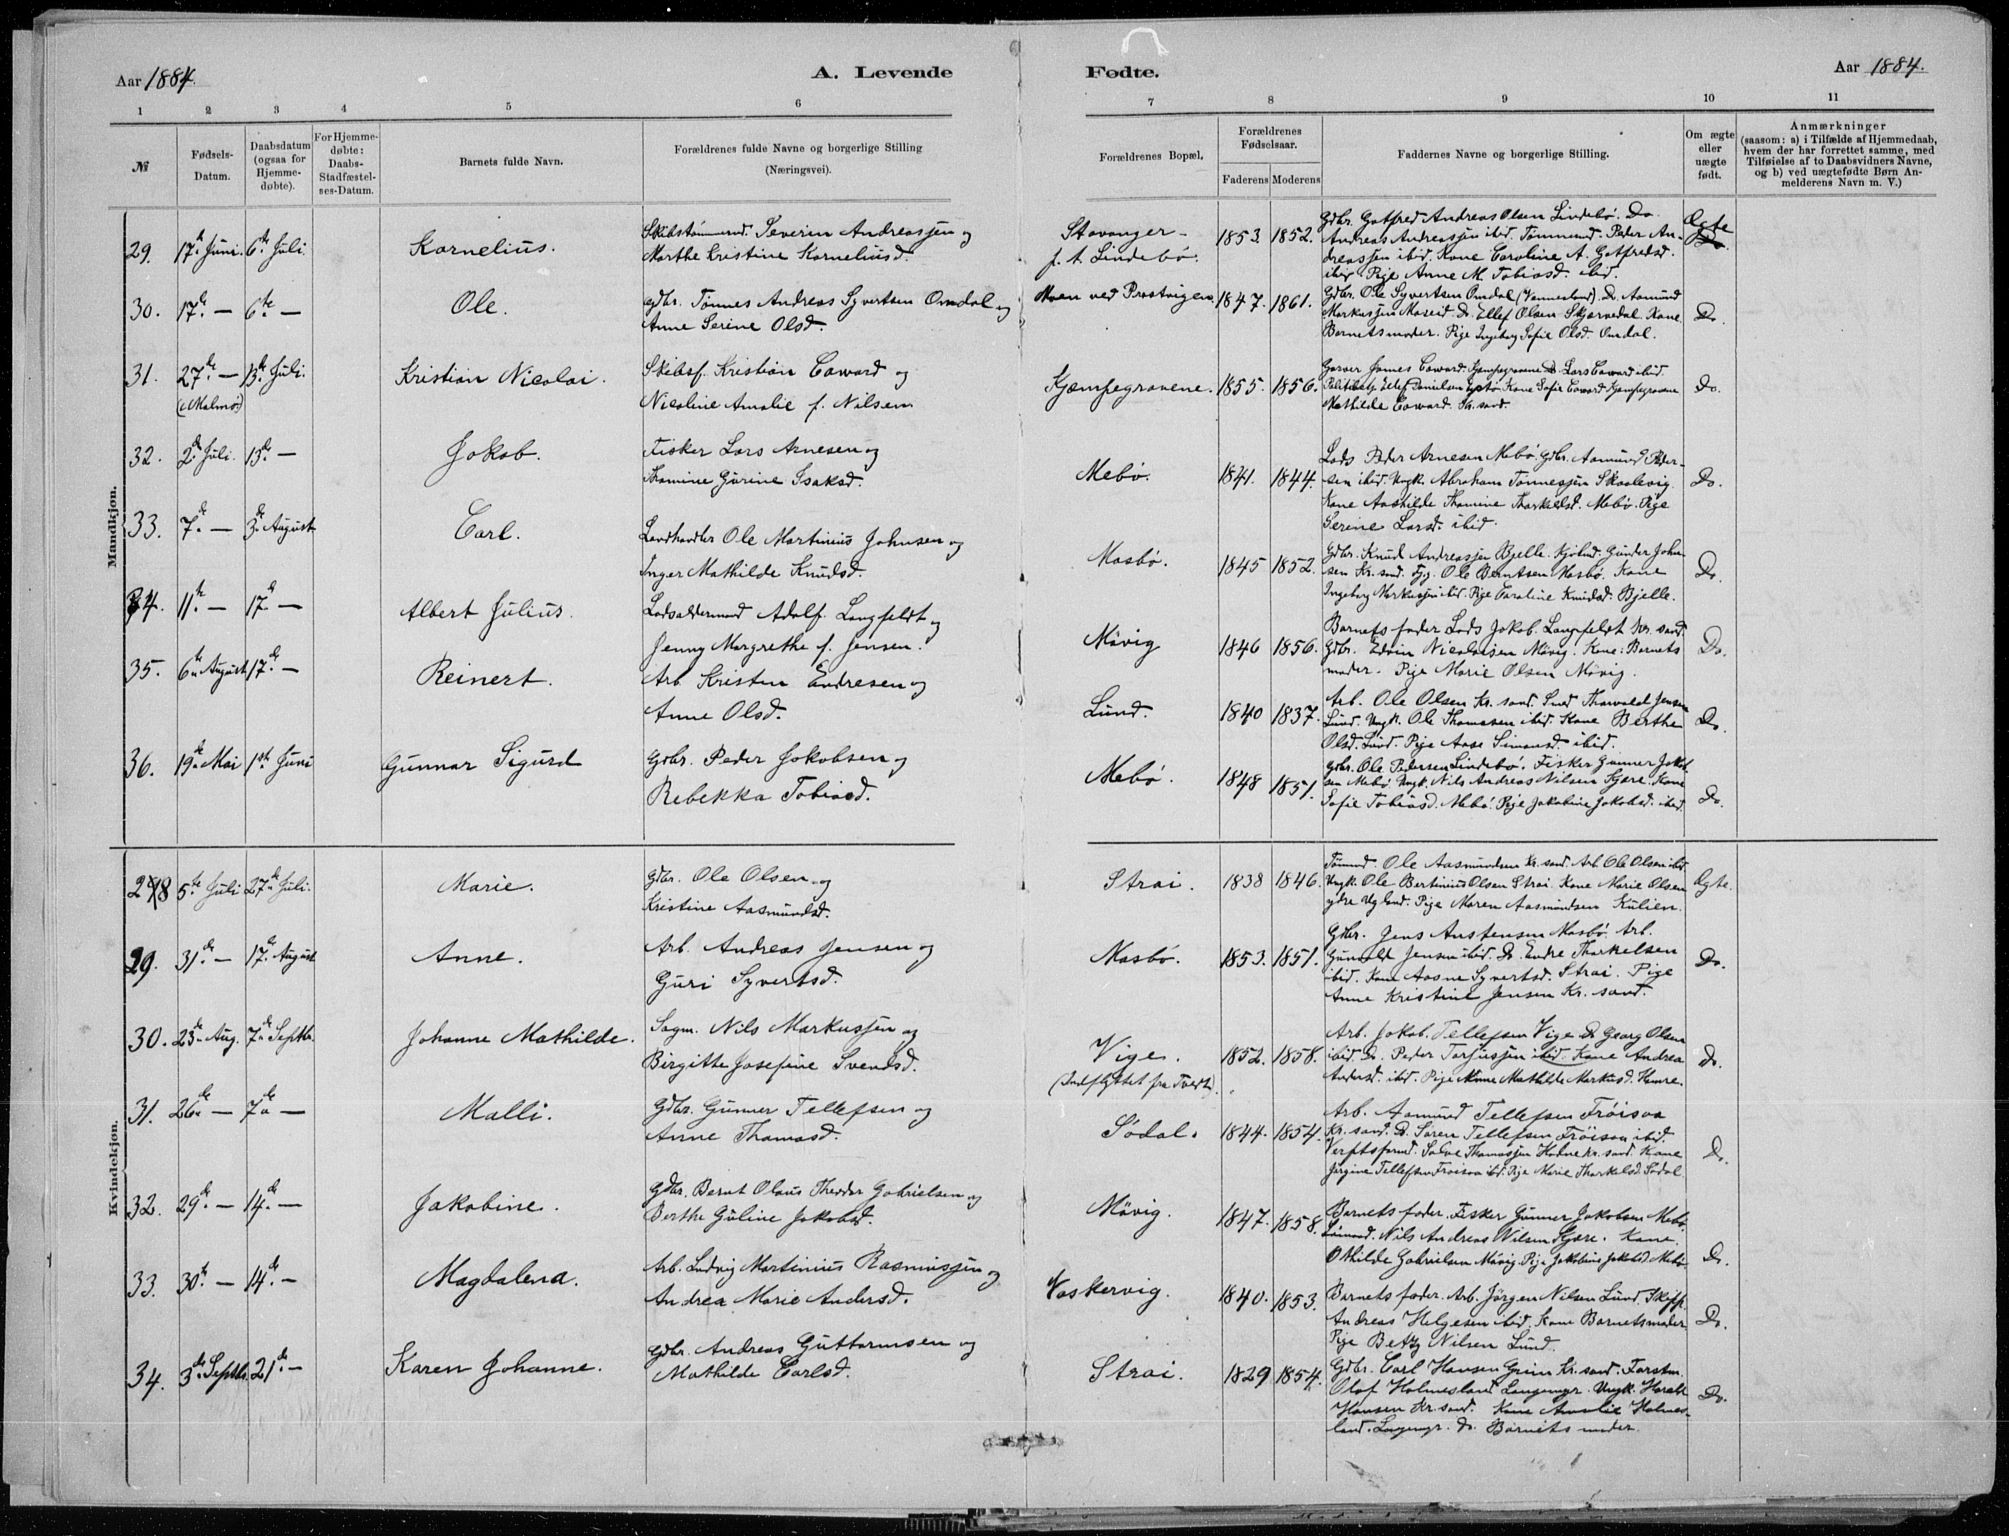 Aar 1884.
A. Levende
Fødte.
Aar 1884.
1 2 3 4 5 6 7 8 9 10 11
№
Fødsels-
Datum.
Daabsdatum
(ogsaa for
Hjemme-
døbte).
For Hjemme-
døbte:
Daabs-
Stadfæstel-
ses-Datum.
Barnets fulde Navn.
Forældrenes fulde Navne og borgerlige Stilling
(Næringsvei).
Forældrenes Bopæl.
Forældrenes
Fødselsaar.
Faderens Moderens
Faddernes Navne og borgerlige Stilling.
Om ægte
eller
uægte
født.
Anmærkninger
(saasom: a) i Tilfælde af Hjemmedaab,
hvem der har forrettet samme, med
Tilføielse af to Daabsvidners Navne,
og b) ved uægtefødte Børn An-
melderens Navn m. V.)
Mandkjøn.
29. 17de Juni. 6te Juli. Kornelius.
Skibstømmermd. Severin Andreassen og
Marthe Kristine Korneliusd.
Stavanger
p. t. Lindebø.
1853. 1852.
Gdbr. Gotfred Andreas Olsen Lindebø. Do.
Andreas Andreassen ibid. Tømmermd. Peder An-
dreassen ibid. Kone Caroline A. Gotfredsd.
ibid. Pige Anne M. Tobiasd. ibid.
Ægte
30. 17de — 6te — Ole.
Gdbr. Tønnes Andreas Syvertsen Omdal og
Anne Serine Olsd.
Moen ved Prostvigen. 1847. 1861.
Gdbr. Ole Syvertsen Omdal (Vennesland). Do. Aamund
Markussen Moseid. Do. Ellef Olsen Skjærvedal. Kone
Barnets moder. Pige Ingeborg Sofie Olsd. Omdal.
Do.
31. 27de — 13de Juli. Kristian Nicolai.
(i Malmø)
Skibsf. Kristian Coward og
Nicoline Amalie f. Nilsen
Kjæmpegravene. 1855. 1856.
Garver James Coward. Kjæmpegravene Do. Lars Coward ibid.
Kone Sofie Coward Kjæmpegravene
Mathilde Coward. Kr. sand.
Do.
32. 2den Juli. 13de — Jakob.
Fisker Lars Arnesen og
Thomine Gurine Isaksd.
Mebø. 1841. 1844.
Lods Peder Arnesen Mebø. Gdbr. Aamund Peder-
sen ibid. Ungk. Abraham Tønnessen Skaalevig.
Kone Aashilde Thomine Thorkildsd. Mebø. Pige
Serine Larsd. ibid.
Do.
33. 7de — 3de August Carl.
Landhandler Ole Martinius Johnsen og
Inger Mathilde Knudsd.
Mosbø. 1845 1852.
Gdbr. Knud Andreassen Bjelle. Kjøbmd. Gunder John-
sen Kr. sand. Ole Berntsen Mosbø. Kone
Ingeborg Markussen ibid. Pige Caroline Knudsd. Bjelle.
Do.
34. 11te — 17de — Albert Julius.
Lodsoldermand Adolf Langfeldt og
Jenny Margrethe f. Jensen.
Møvig 1846 1856.
Barnets fader Lods Jakob Langfeldt Kr. sand.
Gdbr. Edvin Nicolaisen Møvig. Kone: Barnets
moder. Pige Marie Olsen Møvig.
Do.
35. 6te August 17de — Reinert.
Arb. Kristen Endresen og
Anne Olsd.
Lund. 1840 1837.
Arb. Ole Olsen Kr. sand. Smed Thorvald Jensen
Lund. Ungk. Ole Thomasen ibid. Kone Berthe
Olsd. Lund. Pige Aase Simonsd. ibid.
Do.
36. 19de Mai 1ste Juni Gunnar Sigurd
Gdbr. Peder Jakobsen og
Rebekka Tobiasd.
Mebø. 1848 1851.
Gdbr. Ole Pedersen Lindebø. Fisker Gunner Jakob-
sen Mebø. Ungk. Nils Andreas Nilsen Kjære. Kone
Sofie Tobiasd. Mebø. Pige Jakobine Jakobsd. ibid.
Do.
Kvindekjøn.
28 5te Juli 27de Juli. Marie.
Gdbr. Ole Olsen og
Kristine Aasmundsd.
Strai. 1838 1846.
Tømmd. Ole Aasmundsen Kr. sand. Arb. Ole Olsen ibid.
Ungk. Ole Bertinius Olsen Strai. Kone Marie Olsen
ydre Vigland. Pige Maren Aasmundsen Kulien.
Ægte.
29. 31te — 17de August Anne.
Arb. Andreas Jensen og
Guri Syvertsd.
Mosbø. 1853. 1851.
Gdbr. Jens Anstensen Mosbø. Arb.
Gunvald Jensen ibid. Do. Endre Thorkelsen
ibid. Kone Aasne Syvertsd. Strai. Pige
Anne Kristine Jensen Kr. sand.
Do.
30. 23de Aug. 7de Septbr. Johanne Mathilde.
Sagm. Nils Markussen og
Birgitte Josefine Svendsd.
Vige.
(Indflyttet fra Tveit).
1852. 1858.
Arb. Jakob Tellefsen Vige. Do. Georg Olsen
ibid. Do. Peder Torjussen ibid. Kone Andrea
Andersd. ibid. Pige Anne Mathilde Markusd. Hamre.
Do.
31. 26de — 7de — Malli.
Gdbr. Gunner Tellefsen og
Anne Thomasd.
Sødal. 1844. 1854.
Arb. Aamund Tellefsen Frøisaa
Kr. sand. Do. Søren Tellefsen Frøisaa ibid.
Verftsformd. Salve Thomassen Holme Kr. sand. Kone
Jørgine Tellefsen Frøisaa ibid. Pige Marie Thorkelsd. Sødal.
Do.
32. 29de — 14de — Jakobine.
Gdbr. Bernt Olaus Theodor Gabrielsen og
Berthe Guline Jakobsd.
Møvig. 1847. 1858.
Barnets fader. Fisker Gunner Jakobsen Mebø.
Nils Andreas Nilsen Kjære. Kone
Othilde Gabrielsen Møvig. Pige Jakobine Jakobsd. Mebø.
Do.
33. 30te — 14de — Magdalena.
Arb. Ludvig Martinius Rasmussen og
Andrea Marie Andersd.
Voskervig. 1840. 1853.
Barnets fader. Arb. Jørgen Nilsen Lund. Skipp.
Andreas Helgesen ibid. Kone Barnets moder.
Pige Betzy Nilsen Lund.
Do.
34. 3de Septbr. 21de — Karen Johanne.
Gdbr. Andreas Guttormsen og
Mathilde Carlsd.
Strai. 1829 1854.
Gdbr. Carl Hansen Grim Kr. sand. Forstm.
Olaf Holmesland Langemyr. Ungk. Harald
Hansen Kr. sand. Kone Amalie Holmes-
land. Langemyr. Do. Barnets moder.
Do.